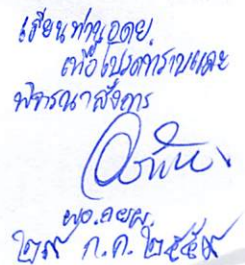 เรียน ท่าน อดย.
เพื่อโปรดทราบและ
พิจารณาสั่งการ
ผอ.
๒๙ ก.ค. ๒๕๕๙